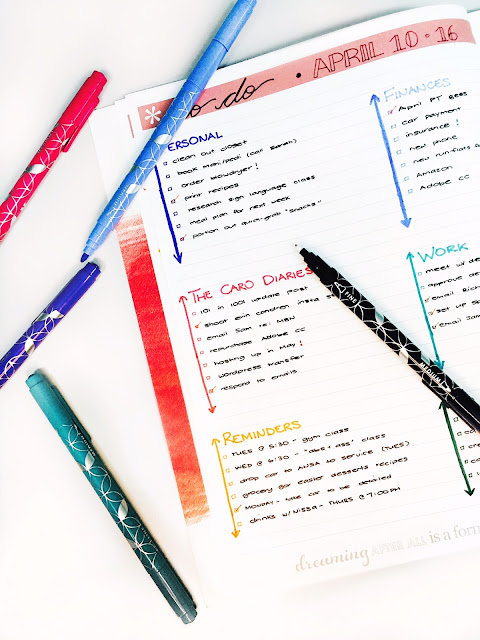 * to do • APRIL 10-16
PERSONAL
clean out closet
book mani/pedi (call Sarah)
order blowdryer!
print recipes
research sign language class
meal plan for next week
portion out quick-grab "snacks"
FINANCES
April PT fees
car payment
insurance!
new phone
new run flats
Amazon
Adobe CC
THE CARO DIARIES
101 in 1001 update post
shoot erin condren insta
email Sam re: MBN
repurchase Adobe CC
hosting up in May!
wordpress transfer
respond to emails
WORK
meet w/
approve
email Rich
set up
email Sam
REMINDERS
TUES @ 5:30 - gym class
WED @ 6:30 - "abs + ass" class
drop car to service (TUES)
grocery for easter desserts recipes
MONDAY - take car to be detailed
drinks w/Nissa - THURS @ 7:00PM
dreaming AFTER ALL is a form
FINE
MEDIUM